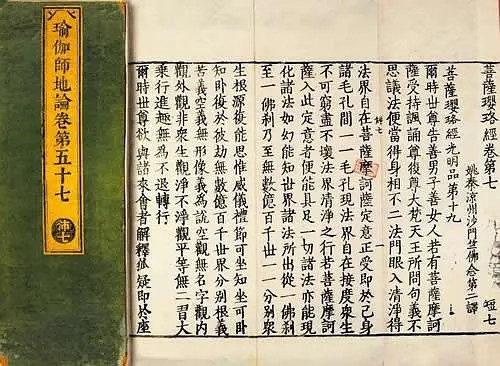 菩薩瓔珞經卷第七 短七
姚秦涼州沙門竺佛念第二譯
菩薩瓔珞經光明品第十九
爾時世尊告善男子善女人若有菩薩摩訶
薩受持諷誦尊復尊大梵天王所問句義不
思議法便當得身相不二法門眼入清淨得
短七 一
法界自在菩薩摩訶薩定意正受即於己身
諸毛孔間一一毛孔現法界自在接度衆生
不可窮盡不壞法界清淨之行若菩薩摩訶
薩入此定意者便能具足一切諸法亦能現
化諸法如幻能知世界諸法所出從一佛刹
至一佛刹乃至無數億百千世一一分別衆
生根源復能思惟威儀禮節可坐知坐可卧
知卧復於彼劫無數億百千世界分別根義
苦義空義無形像義為說空觀無名字觀內
觀外觀非衆生觀淨不淨觀平等無二習大
乘行進趣無為不退轉行
爾時世尊欲與諸來會者解釋狐疑即於座
瑜伽師地論卷第五十七